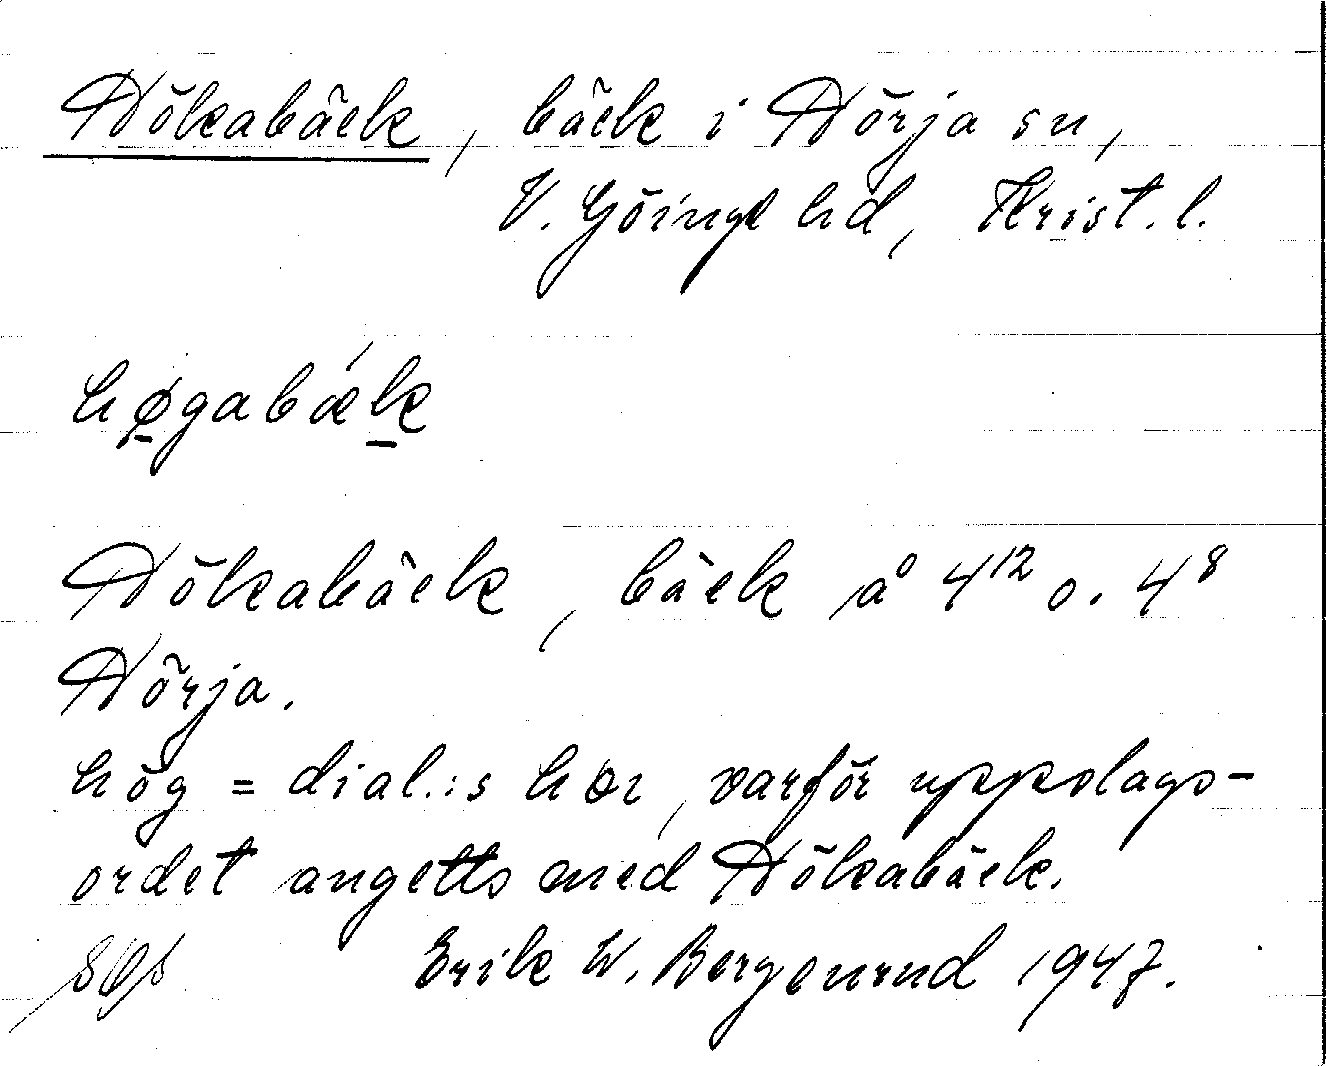 Hökabäck, bäck i Hörja sn,
V. Göinge hd, Krist. l.
høgabæk
Hökabäck, bäck å 4¹² o. 4⁸
Hörja.
hög = dial.:s hør, varför uppslags-
ordet angetts med Hökabäck.
Erik W. Bergenrud 1947.